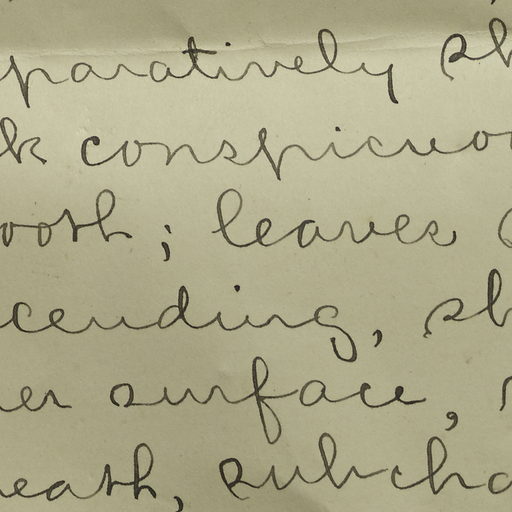 paratively sh
k conspicuo
ooth; leaves
cending, sh
er surface,
eath, subcha